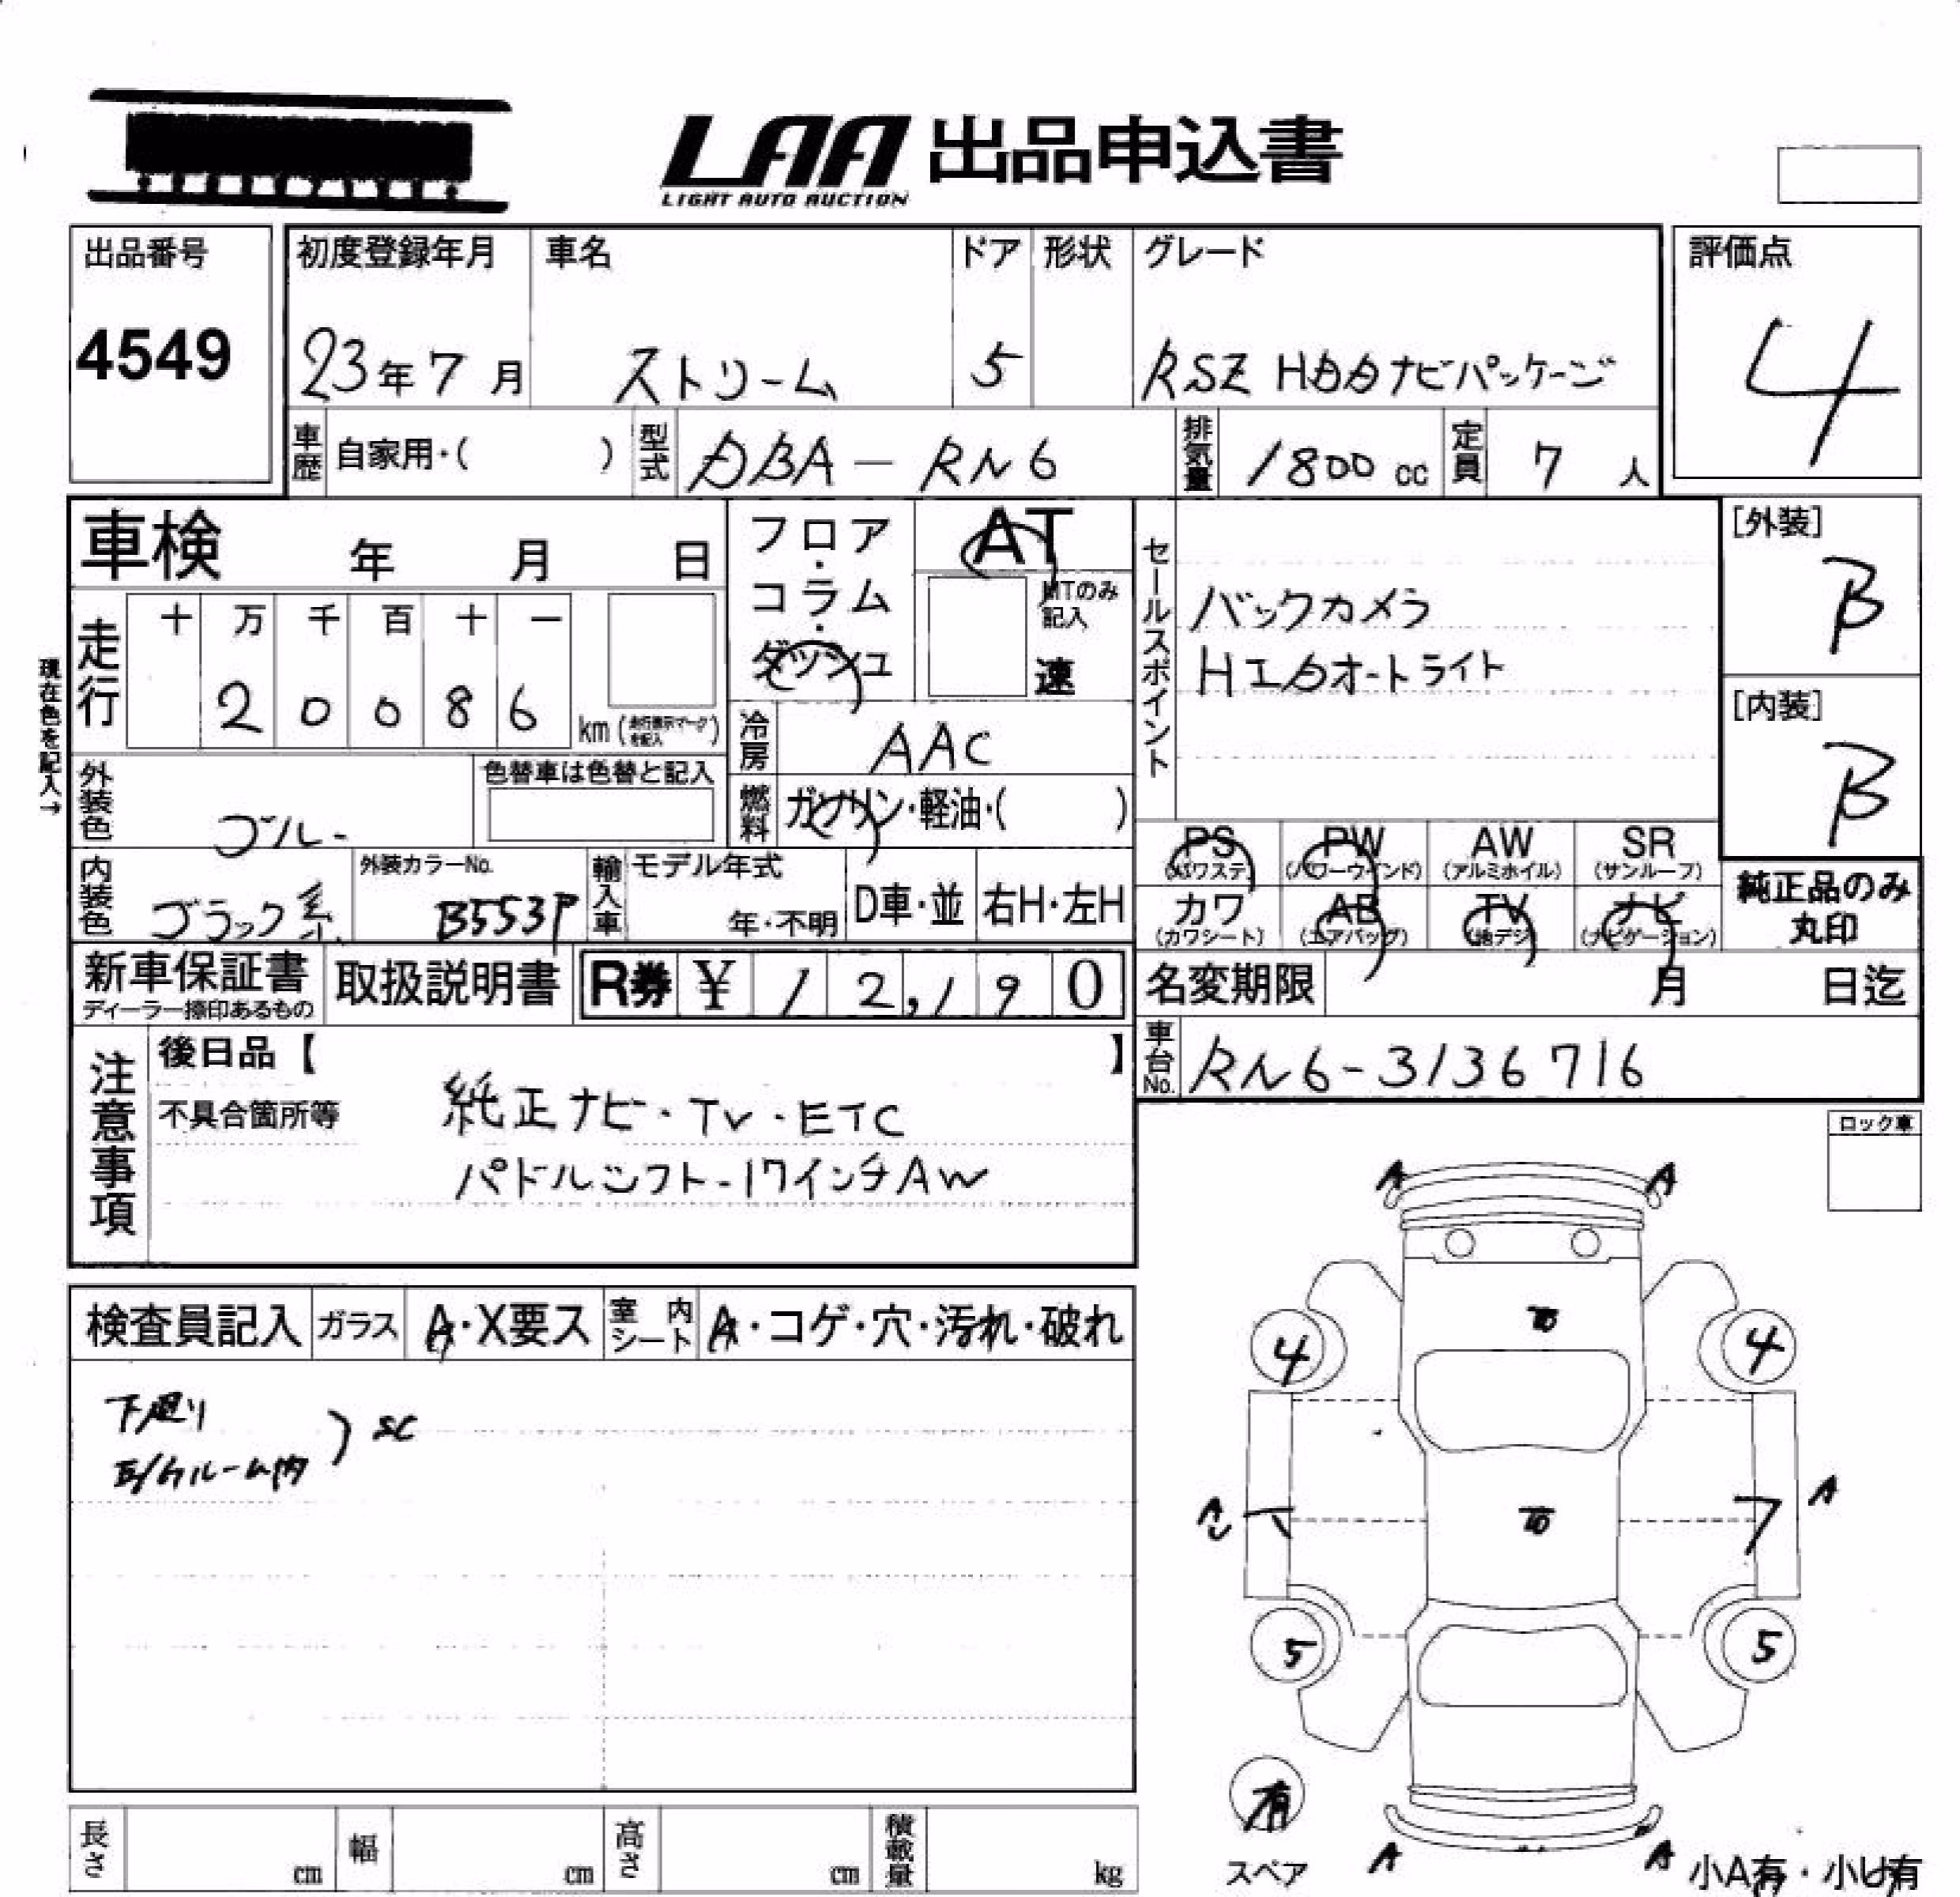 LAA 出品申込書
LIGHT AUTO AUCTION
出品番号
4549
初度登録年月
23年7月
車名
ストリーム
ドア
5
形状
グレード
RSZ HDDナビパッケージ
評価点
4
車歴
自家用・( )
型式
DBA-RN6
排気量
1800cc
定員
7人
車検 年 月 日
フロア・コラム・ダッシュ
AT
MTのみ記入
速
セールスポイント
バックカメラ
HIDオートライト
[外装]
B
[内装]
B
現在色を記入→
走行
十 万 千 百 十 一
2 0 0 8 6
km (走行表示マークを記入)
冷房
AAC
燃料
ガソリン・軽油・( )
外装色
ブルー
色替車は色替と記入
内装色
ブラック系
外装カラーNo.
B553P
輸入車
モデル年式
年・不明
D車・並
右H・左H
PS (パワステ)
PW (パワーウインド)
AW (アルミホイル)
SR (サンルーフ)
カワ (カワシート)
AB (エアバッグ)
TV (地デジ)
ナビ (ナビゲーション)
純正品のみ丸印
新車保証書
ディーラー捺印あるもの
取扱説明書
R券 ¥ 12,190
名変期限 月 日迄
車台No.
RN6-3136716
注意事項
後日品【 】
不具合箇所等
純正ナビ・TV・ETC
パドルシフト-17インチAW
ロック車
検査員記入
ガラス
A・X要ス
室内シート
A・コゲ・穴・汚れ・破れ
下廻り
E/Gルーム内
) SC
A A
4 4
A
A
5 5
有
スペア
A A
小A有・小U有
長さ cm
幅 cm
高さ cm
積載量 kg